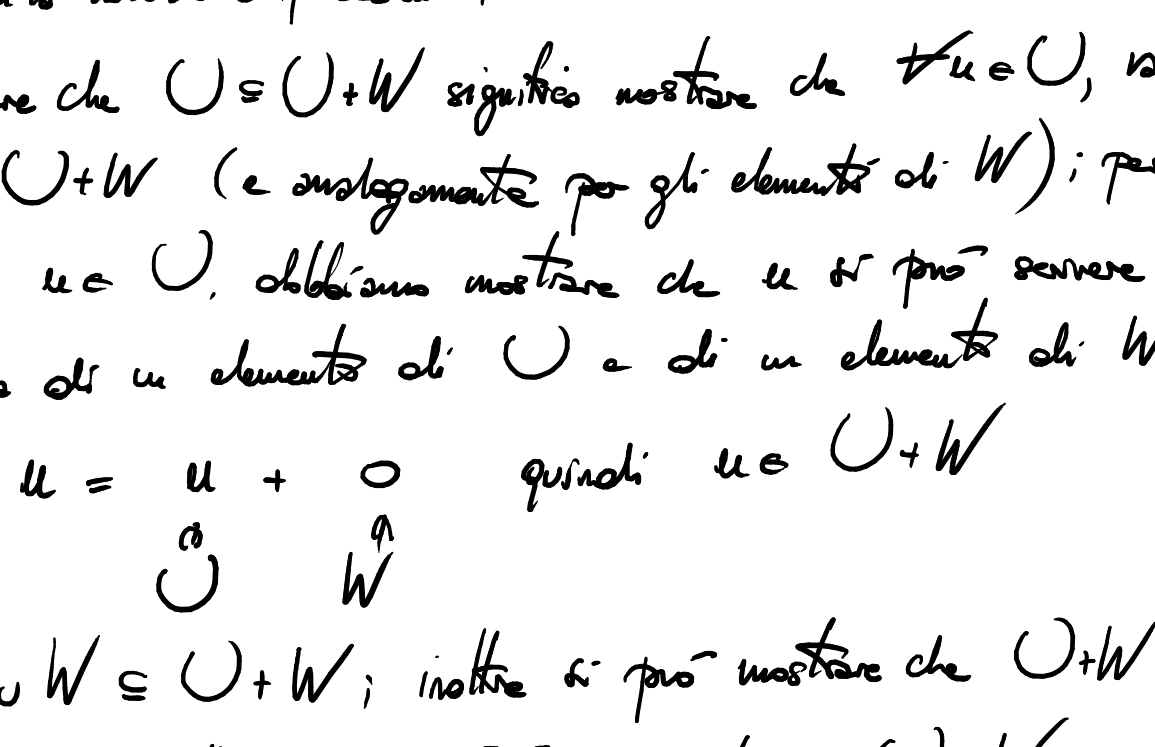 che U ⊆ U+W significa mostrare che ∀u∈U,
U+W (e analogamente per gli elementi di W); per
u∈ U, dobbiamo mostrare che u si può scrivere
di un elemento di U e di un elemento di W
u = u + 0 quindi u∈ U+W
∩ ∩
U W
W ⊆ U+W; inoltre si può mostrare che U+W